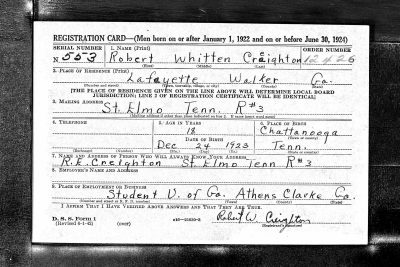 REGISTRATION CARD—(Men born on or after January 1, 1922 and on or before June 30, 1924)
SERIAL NUMBER 1. NAME (Print) ORDER NUMBER
N 553 Robert Whitten Creighton 12426
(First) (Middle) (Last)
2. PLACE OF RESIDENCE (Print)
Lafayette Walker Ga.
(Number and street) (Town, township, village, or city) (County) (State)
[THE PLACE OF RESIDENCE GIVEN ON THE LINE ABOVE WILL DETERMINE LOCAL BOARD
JURISDICTION; LINE 2 OF REGISTRATION CERTIFICATE WILL BE IDENTICAL]
3. MAILING ADDRESS
St. Elmo Tenn. R#3
[Mailing address if other than place indicated on line 2. If same insert word same]
4. TELEPHONE 5. AGE IN YEARS 6. PLACE OF BIRTH
18 Chattanooga
DATE OF BIRTH (Town or county)
Dec 24 1923 Tenn.
(Exchange) (Number) (Mo.) (Day) (Yr.) (State or country)
7. NAME AND ADDRESS OF PERSON WHO WILL ALWAYS KNOW YOUR ADDRESS
R.E. Creighton St Elmo Tenn R#3
8. EMPLOYER'S NAME AND ADDRESS
9. PLACE OF EMPLOYMENT OR BUSINESS
Student U. of Ga. Athens Clarke Ga.
(Number and street or R. F. D. number) (Town) (County) (State)
I AFFIRM THAT I HAVE VERIFIED ABOVE ANSWERS AND THAT THEY ARE TRUE.
D. S. S. Form 1
(Revised 6-1-42) (over) Robert W. Creighton
(Registrant's signature)